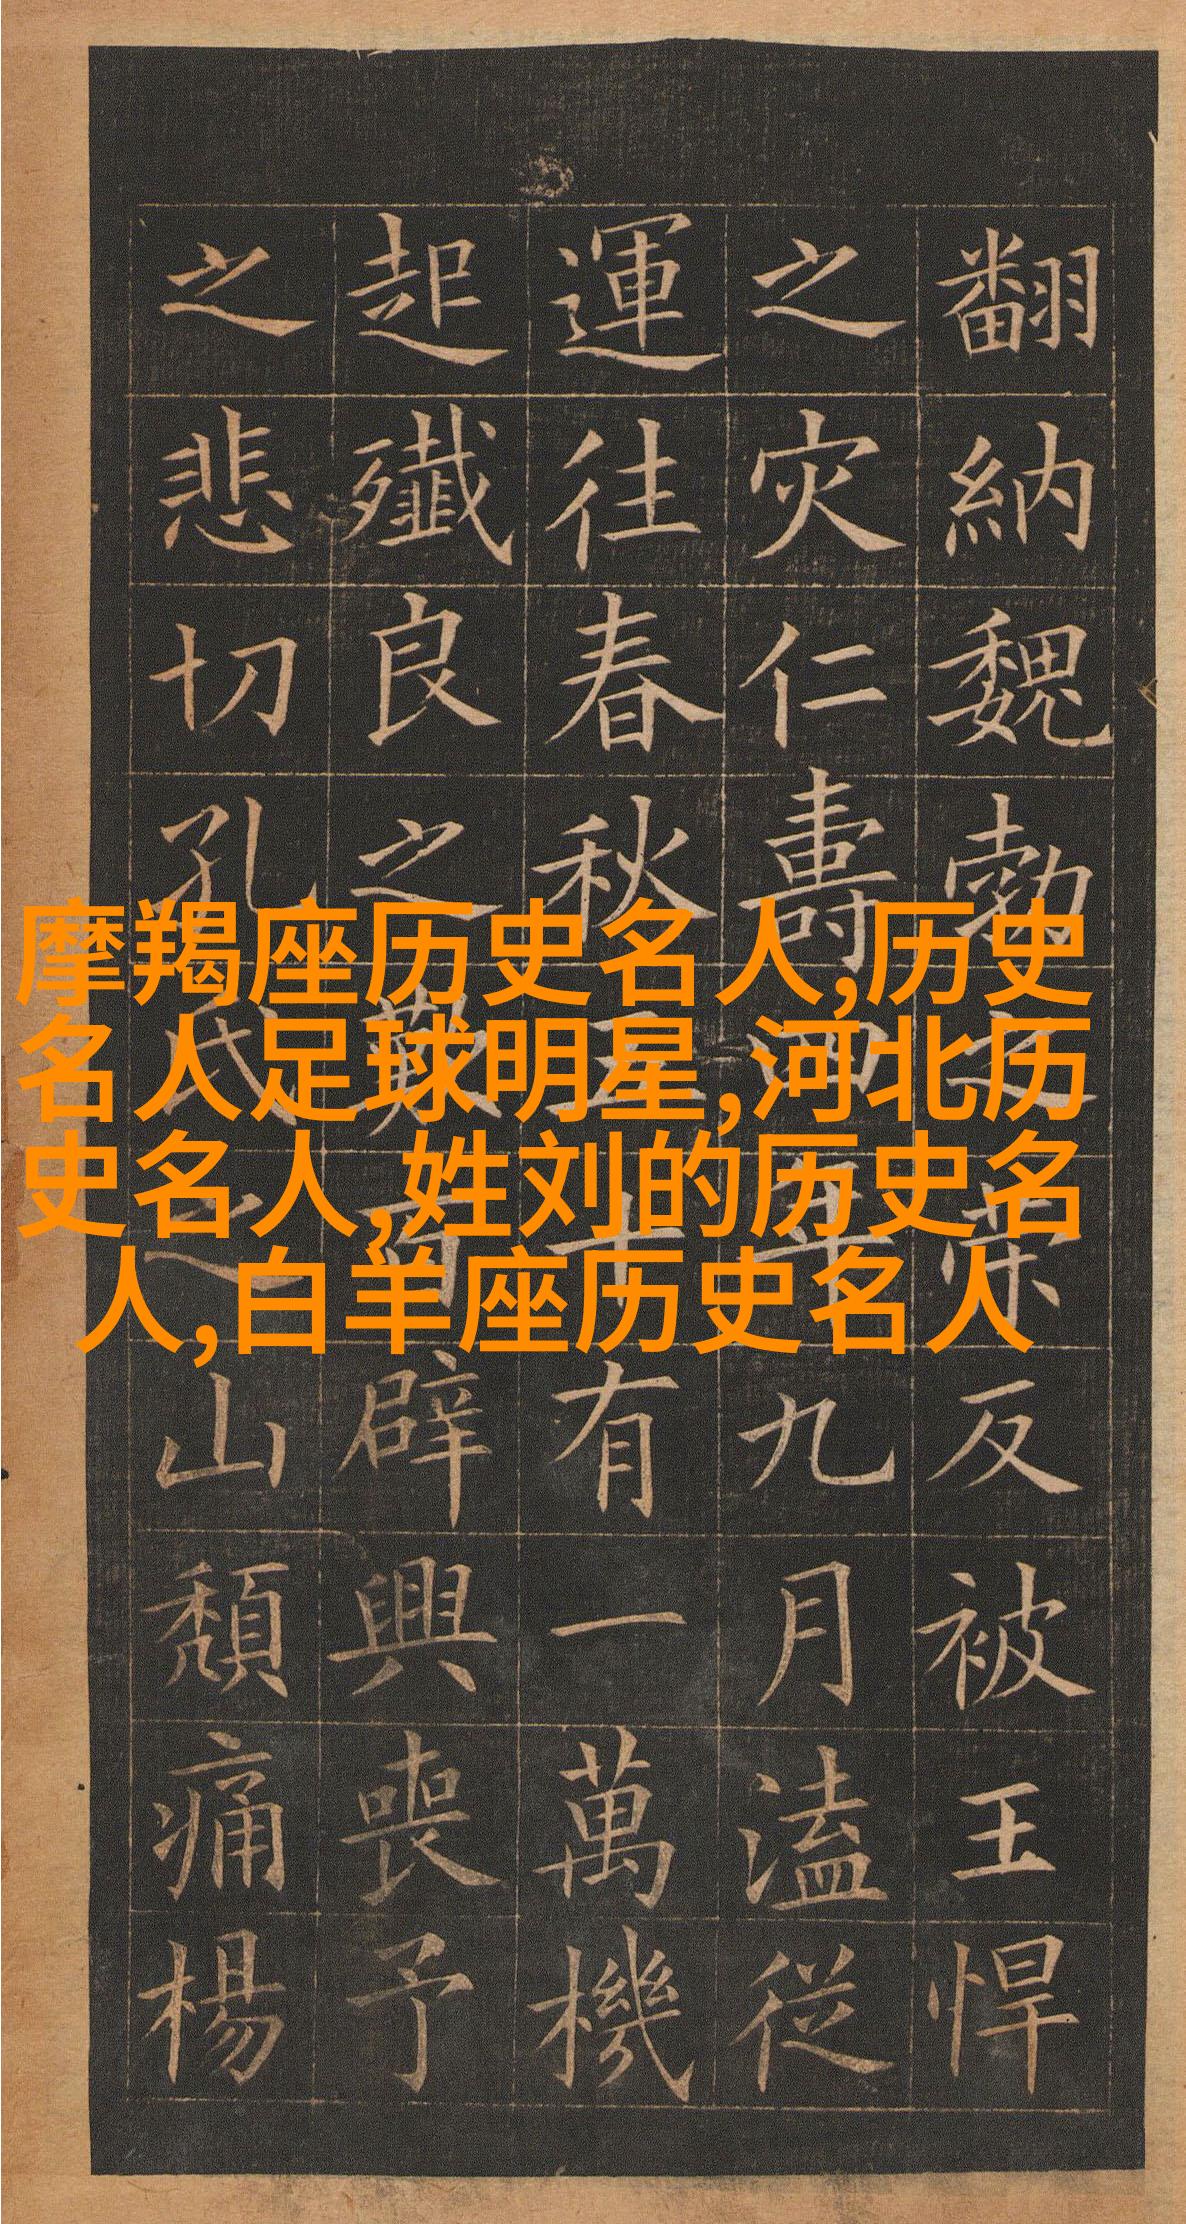 翻納魏勃之反被王悍
之灾仁壽四年九月溘從
運往春秋五十有一萬機
起殲良之歎百辟興喪予
之悲切孔氏之山頽痛楊
摩羯座历史名人,历史
名人足球明星,河北历
史名人,姓刘的历史名
人,白羊座历史名人